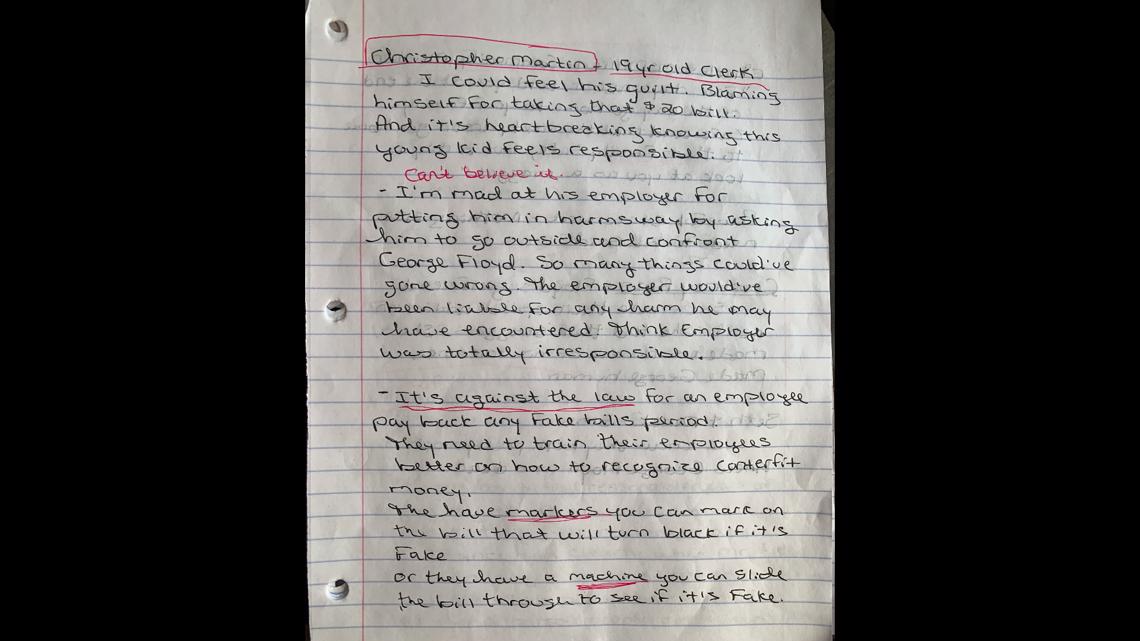 Christopher Martin - 19 yr old Clerk
I could feel his guilt. Blaming
himself for taking that $20 bill.
And it's heartbreaking knowing this
young kid feels responsible.
Can't believe it.
- I'm mad at his employer for
putting him in harmsway by asking
him to go outside and confront
George Floyd. So many things could've
gone wrong. The employer would've
been liable for any harm he may
have encountered. Think Employer
was totally irresponsible.
- It's against the law for an employee
pay back any fake bills period.
They need to train their employees
better on how to recognize conterfit
money.
The have markers you can mark on
the bill that will turn black if it's
Fake
or they have a machine you can slide
the bill through to see if it's Fake.